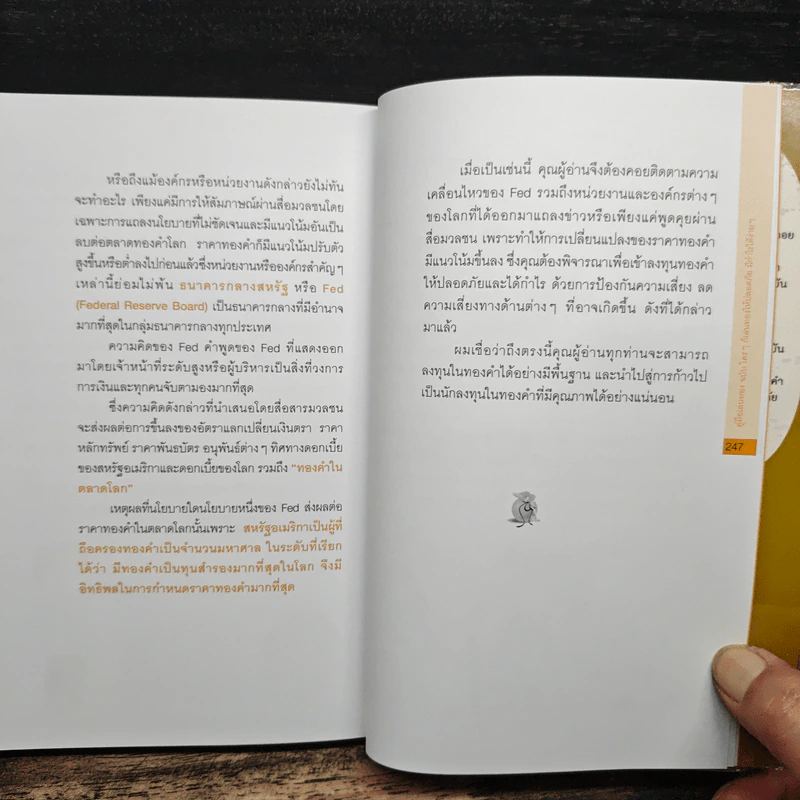 หรือถึงแม้องค์กรหรือหน่วยงานดังกล่าวยังไม่ทัน
จะทำอะไร เพียงแค่มีการให้สัมภาษณ์ผ่านสื่อมวลชนโดย
เฉพาะการแถลงนโยบายที่ไม่ชัดเจนและมีแนวโน้มอันเป็น
ลบต่อตลาดทองคำโลก ราคาทองคำก็มีแนวโน้มปรับตัว
สูงขึ้นหรือต่ำลงไปก่อนแล้วซึ่งหน่วยงานหรือองค์กรสำคัญๆ
เหล่านี้ย่อมไม่พ้น ธนาคารกลางสหรัฐ หรือ Fed
(Federal Reserve Board) เป็นธนาคารกลางที่มีอำนาจ
มากที่สุดในกลุ่มธนาคารกลางทุกประเทศ
ความคิดของ Fed คำพูดของ Fed ที่แสดงออก
มาโดยเจ้าหน้าที่ระดับสูงหรือผู้บริหารเป็นสิ่งที่วงการ
การเงินและทุกคนจับตามองมากที่สุด
ซึ่งความคิดดังกล่าวที่นำเสนอโดยสื่อสารมวลชน
จะส่งผลต่อการขึ้นลงของอัตราแลกเปลี่ยนเงินตรา ราคา
หลักทรัพย์ ราคาพันธบัตร อนุพันธ์ต่างๆ ทิศทางดอกเบี้ย
ของสหรัฐอเมริกาและดอกเบี้ยของโลก รวมถึง "ทองคำใน
ตลาดโลก"
เหตุผลที่นโยบายใดนโยบายหนึ่งของ Fed ส่งผลต่อ
ราคาทองคำในตลาดโลกนั้นเพราะ สหรัฐอเมริกาเป็นผู้ที่
ถือครองทองคำเป็นจำนวนมหาศาล ในระดับที่เรียก
ได้ว่า มีทองคำเป็นทุนสำรองมากที่สุดในโลก จึงมี
อิทธิพลในการกำหนดราคาทองคำมากที่สุด
เมื่อเป็นเช่นนี้ คุณผู้อ่านจึงต้องคอยติดตามความ
เคลื่อนไหวของ Fed รวมถึงหน่วยงานและองค์กรต่างๆ
ของโลกที่ได้ออกมาแถลงข่าวหรือเพียงแค่พูดคุยผ่าน
สื่อมวลชน เพราะทำให้การเปลี่ยนแปลงของราคาทองคำ
มีแนวโน้มขึ้นลง ซึ่งคุณต้องพิจารณาเพื่อเข้าลงทุนทองคำ
ให้ปลอดภัยและได้กำไร ด้วยการป้องกันความเสี่ยง ลด
ความเสี่ยงทางด้านต่างๆ ที่อาจเกิดขึ้น ดังที่ได้กล่าว
มาแล้ว
ผมเชื่อว่าถึงตรงนี้คุณผู้อ่านทุกท่านจะสามารถ
ลงทุนในทองคำได้อย่างมีพื้นฐาน และนำไปสู่การก้าวไป
เป็นนักลงทุนในทองคำที่มีคุณภาพได้อย่างแน่นอน
247